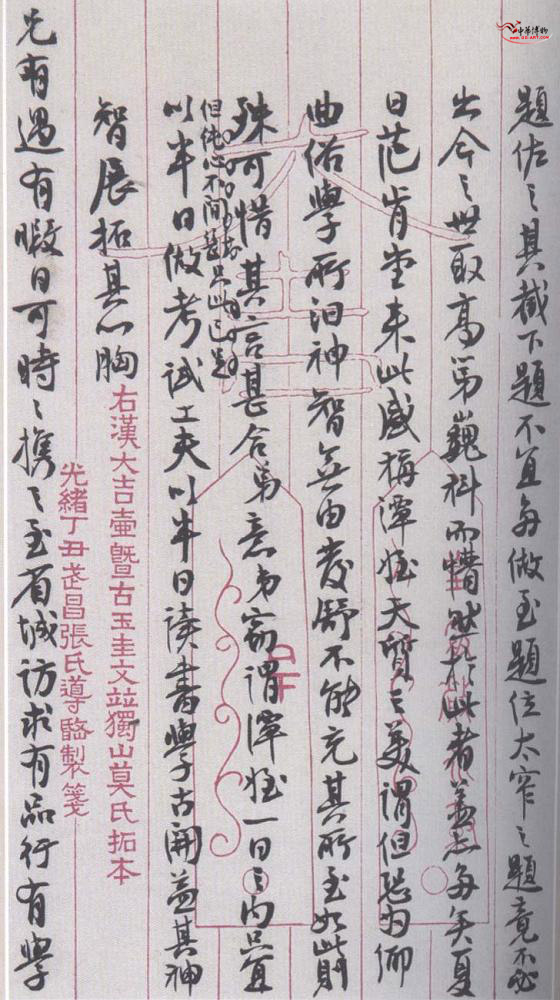 題佐之其截下題不宜多做至題位太窄之題竟不必
出今之世取高第巍科而懵然於此者蓋亦多矣夏
日范肯堂來此盛稱澤姪天質之美謂但恐为鄉
曲俗學所汨神智無由發舒不能充其所至如此則
殊可惜其言甚合弟意弟竊謂澤姪一日之內只宜
但純心不間斷只此已是
以半日做考試工夫以半日讀書學古開益其神
智展拓其心胸
右漢大吉壺暨古玉圭文竝獨山莫氏拓本
光緒丁丑武昌張氏導臨製箋
兄有過有暇日可時〻攜之至省城訪求有品行有學
中华博物